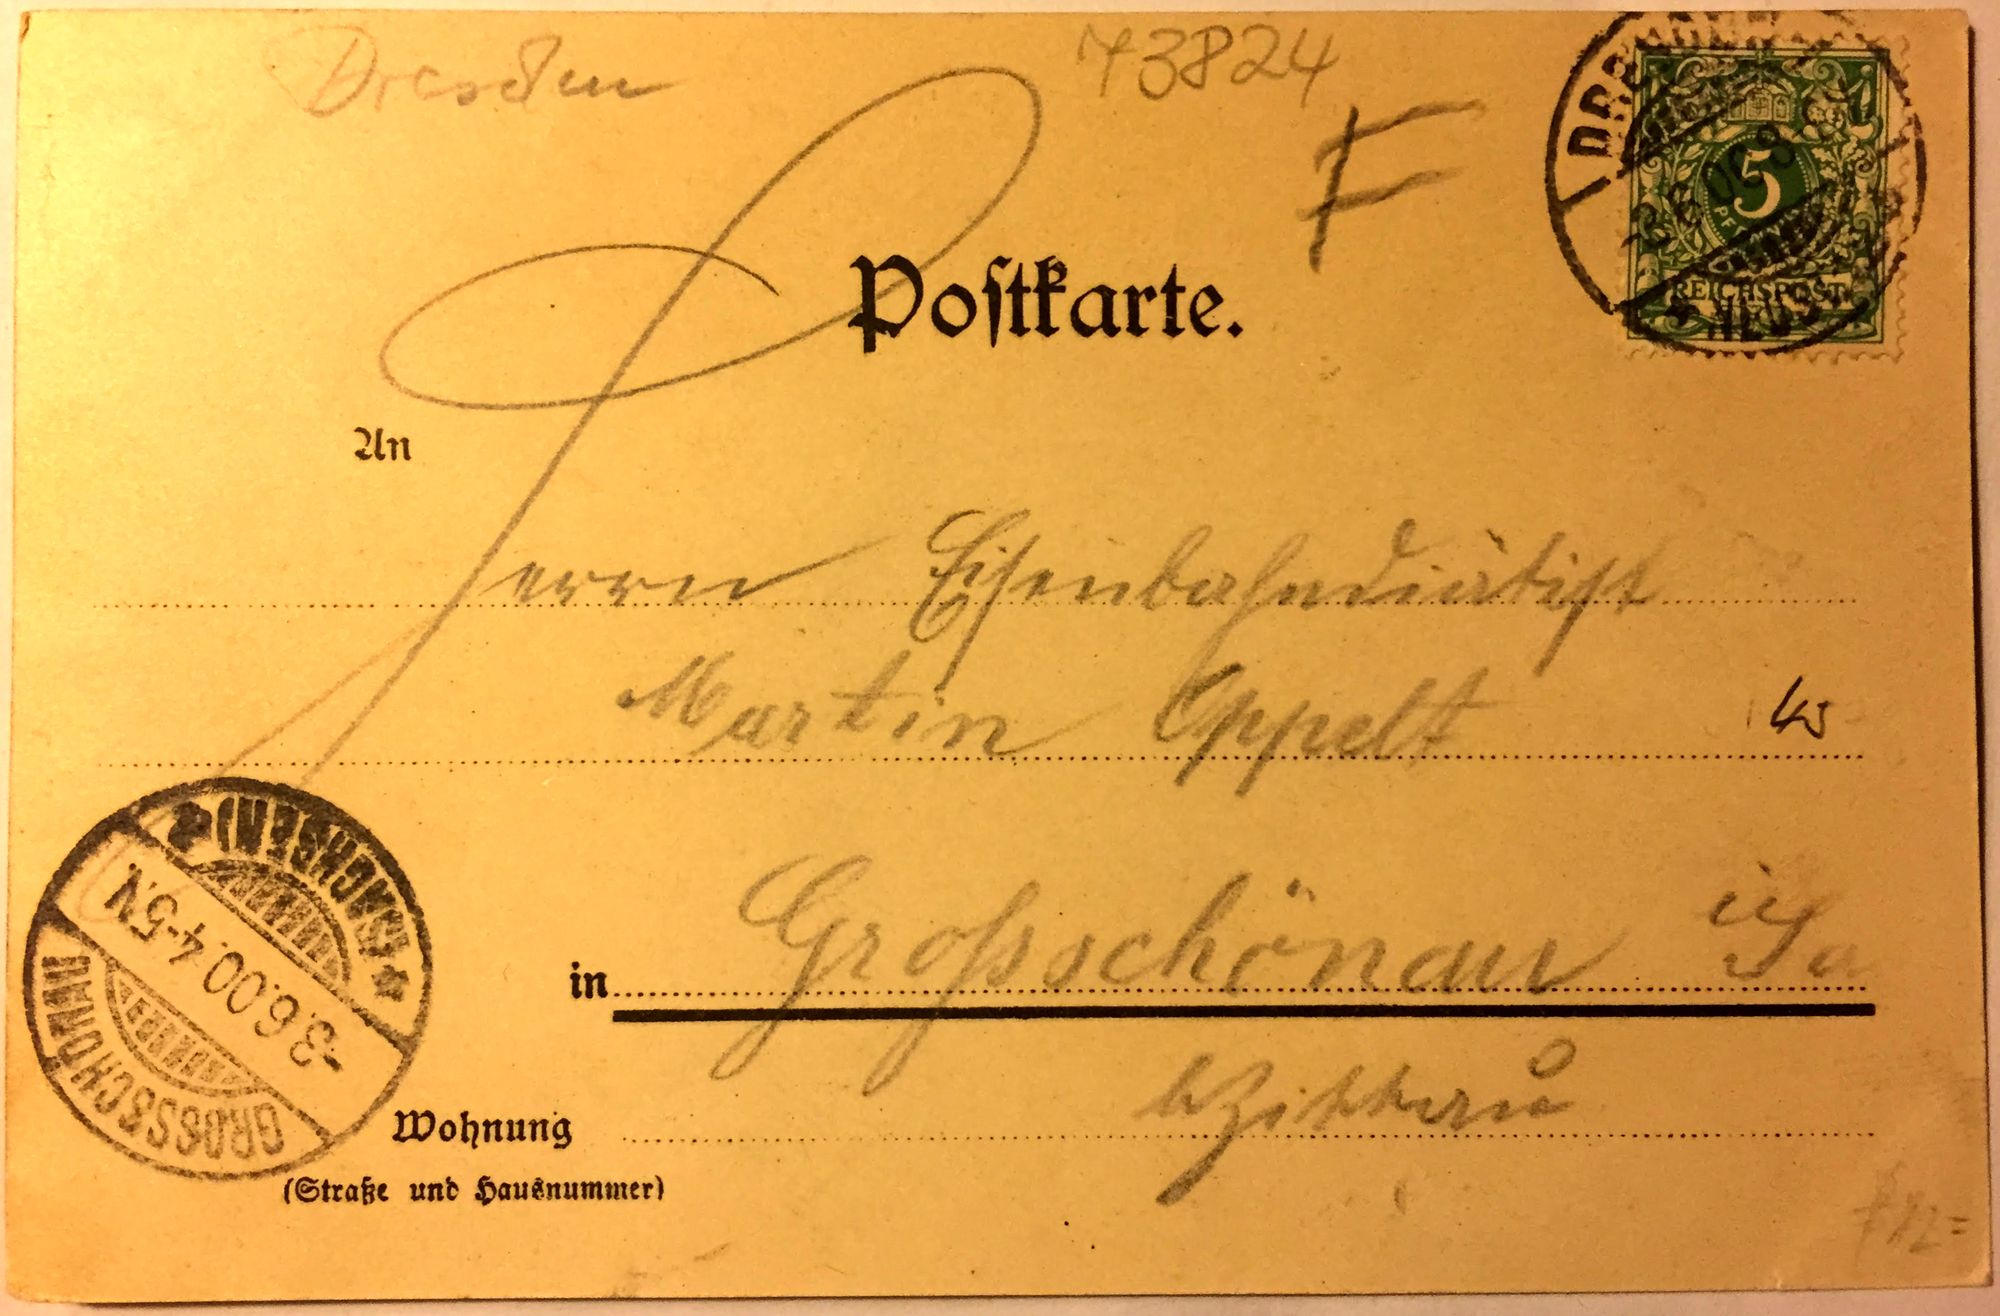 Dresden
73824
F
5
REICHSPOST
Postkarte.
An
Herrn Eisenbahndiätist
Martin Oppelt
in Grossschönau i/Sa
b Zittau
Wohnung
(Straße und Hausnummer)
GROSSSCHÖNAU
-3.6.00.4-5N.
*(SACHSEN)*